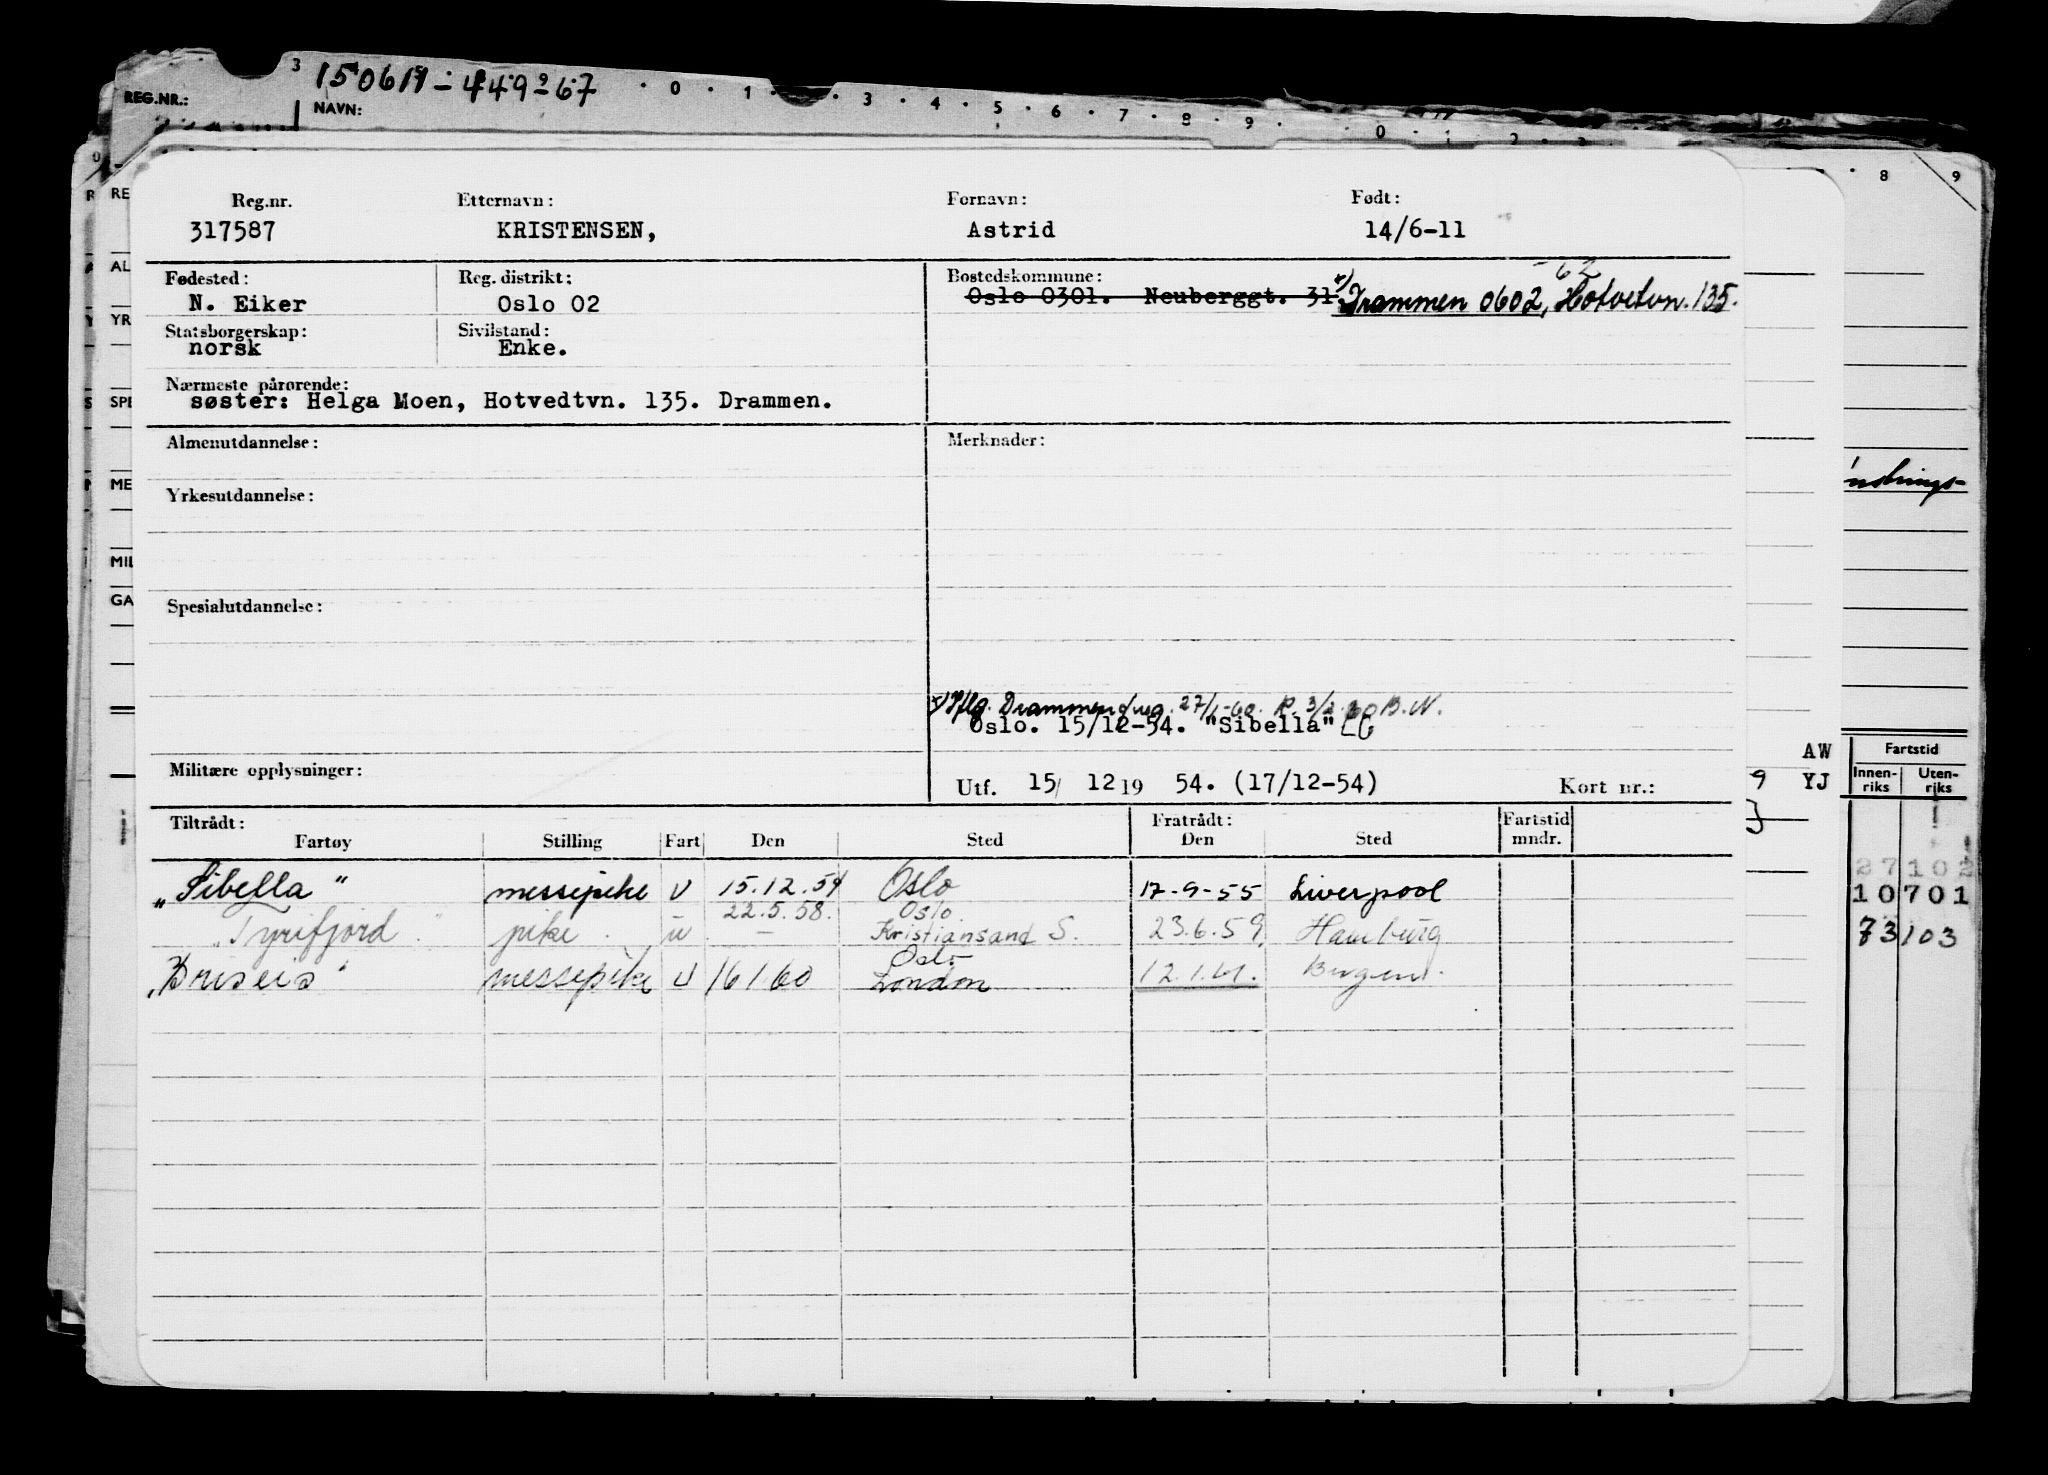 3 150611-449-67 0 1 3 4 5 6 7 8 9 0 1 2 3
REG.NR.: NAVN:
8 9
Reg.nr. Etternavn: Fornavn: Født:
317587 KRISTENSEN, Astrid 14/6-11
Fødested: Reg. distrikt: Bostedskommune: -62
N. Eiker Oslo 02 Oslo 0301. Neuberggt. 31. x) Drammen 0602, Hotvetvn. 135.
Statsborgerskap: Sivilstand:
norsk Enke.
Nærmeste pårørende:
søster: Helga Moen, Hotvedtvn. 135. Drammen.
Almenutdannelse: Merknader:
Yrkesutdannelse:
Spesialutdannelse:
x) Iflg. Drammen 27/1-60. R. 3/2-60 B.N.
Oslo. 15/12-54. "Sibella"
Militære opplysninger:
Utf. 15/ 12 19 54. (17/12-54) Kort nr.:
Tiltrådt: Fratrådt: Fartstid
Fartøy Stilling Fart Den Sted Den Sted mndr.
"Sibella" messepike U 15.12.54 Oslo 17-9-55 Liverpool
22.5.58. Oslo
"Tyrifjord" pike. u - Kristiansand S. 23.6.59. Hamburg
Oslo
"Briseis" messepike U 16 1 60 London 12.1.61. Bergen.
RE
AL
YR
SPE
ME
MIL
GA
AW
9 YJ
Fartstid
Innen-riks Uten-riks
27102
10701
73103